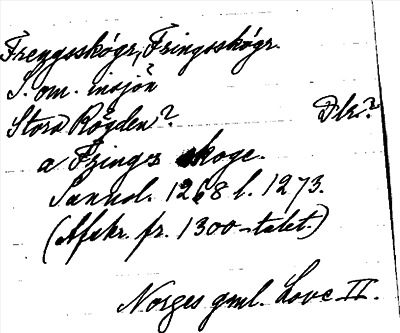 Frengsskógr, Fringsskógr.
S. om. insjön
Stora Rögden? Dlr?
a Fzings skoge.
Sannol. 1268 l. 1273.
(Afskr. fr. 1300-talet.)
Norges gml. Love II.